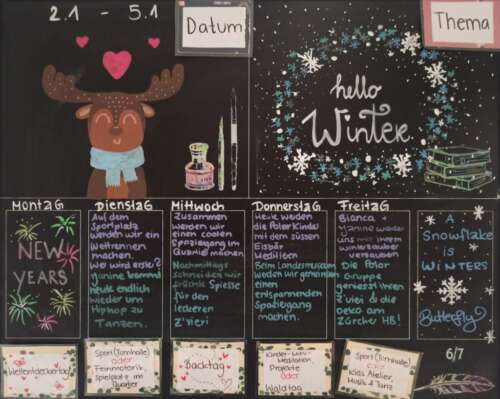 2.1 - 5.1
Datum
Thema
hello
Winter
Montag
Dienstag
Mittwoch
Donnerstag
Freitag
NEW
YEARS
Auf dem
Sportplatz
werden wir ein
Wettrennen
machen.
Wer wird erste?
Janine kommt
heute endlich
wieder um
Hiphop zu
Tanzen.
Zusammen
werden wir
einen coolen
Spaziergang im
Quartier machen
Nachmittags
schneiden wir
Spiesse
für den
leckeren
Z'vieri
Heute werden
die Polarkinder
mit dem süssen
Eisbär
Beim Landesmuseum
werden wir gemeinsam
einen
entspannenden
Spaziergang
machen.
Bianca +
Janine werden
uns mit ihrem
winterzauber
verzaubern
Die Polar
Gruppe
geniesst ihren
Z'vieri & die
Deko am
Zürcher HB!
A
Snowflake
is
WINTERS
Butterfly
Weltentdeckertag
Sport (Turnhalle)
oder
Feinmotorik,
Spielpost im
Quartier
Backtag
Kinder-
Meditation,
Projekte
oder
Waldtag
Sport (Turnhalle)
oder
Kids Atelier,
Musik & Tanz
6/7